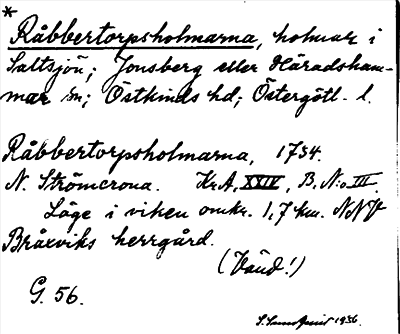 *
Råbbertorpsholmarna, holmar i
Saltsjön; Jonsberg eller Häradsham-
mar sn; Östkinds hd; Östergötl. l.
Råbbertorpsholmarna, 1734.
N. Strömcrona. Kr.A, XXIV, B, N:o III.
Läge i viken omkr. 1,7 km. NNV
Bråxviks herrgård.
(Vänd!)
G. 56.
1936.